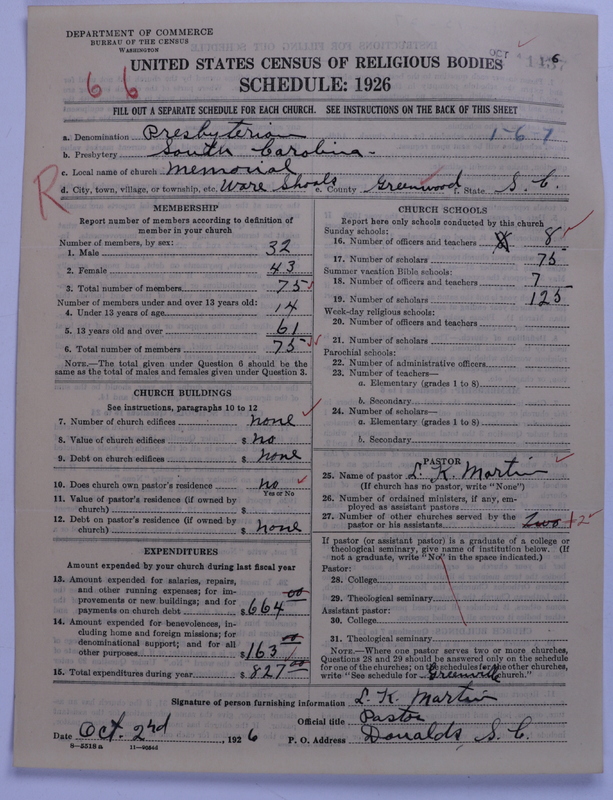 DEPARTMENT OF COMMERCE
BUREAU OF THE CENSUS
WASHINGTON
UNITED STATES CENSUS OF RELIGIOUS BODIES
SCHEDULE: 1926
66
FILL OUT A SEPARATE SCHEDULE FOR EACH CHURCH. SEE INSTRUCTIONS ON THE BACK OF THIS SHEET
a. Denomination Presbyterian 1-6-7
b. Presbytery South Carolina
c. Local name of church Memorial
R
d. City, town, village, or township, etc. Ware Shoals e. County Greenwood f. State S. C.
MEMBERSHIP
Report number of members according to definition of
member in your church
Number of members, by sex:
1. Male 32
2. Female 43
3. Total number of members 75
Number of members under and over 13 years old:
4. Under 13 years of age 14
5. 13 years old and over 61
6. Total number of members 75
NOTE.—The total given under Question 6 should be
same as the total of males and females given under Question 3.
CHURCH BUILDINGS
See instructions, paragraphs 10 to 12
7. Number of church edifices none
8. Value of church edifices $ no
9. Debt on church edifices $ none
10. Does church own pastor's residence no
Yes or No
11. Value of pastor's residence (if owned by
church) $
12. Debt on pastor's residence (if owned by
church) $ none
EXPENDITURES
Amount expended by your church during last fiscal year
13. Amount expended for salaries, repairs,
and other running expenses; for im-
provements or new buildings; and for
payments on church debt $ 664 00
14. Amount expended for benevolences, in-
cluding home and foreign missions; for
denominational support; and for all
other purposes $ 163 00
15. Total expenditures during year $ 827 00
CHURCH SCHOOLS
Report here only schools conducted by this church
Sunday schools:
16. Number of officers and teachers 8
17. Number of scholars 75
Summer vacation Bible schools:
18. Number of officers and teachers 7
19. Number of scholars 125
Week-day religious schools:
20. Number of officers and teachers
21. Number of scholars
Parochial schools:
22. Number of administrative officers
23. Number of teachers—
a. Elementary (grades 1 to 8)
b. Secondary
24. Number of scholars—
a. Elementary (grades 1 to 8)
b. Secondary
PASTOR
25. Name of pastor L. K. Martin
(If church has no pastor, write "None")
26. Number of ordained ministers, if any, em-
ployed as assistant pastors
27. Number of other churches served by the
pastor or his assistants two +2
If pastor (or assistant pastor) is a graduate of a college or
theological seminary, give name of institution below. (If
not a graduate, write "No" in the space indicated.)
Pastor:
28. College
29. Theological seminary
Assistant pastor:
30. College
31. Theological seminary
NOTE.—Where one pastor serves two or more churches,
Questions 28 and 29 should be answered only on the schedule
for one of the churches; on the schedules for the other churches,
write "See schedule for Greenville church."
Signature of person furnishing information L. K. Martin
Official title Pastor
Date Oct. 2nd, 1926 P. O. Address Donalds S. C.
8-5518 a